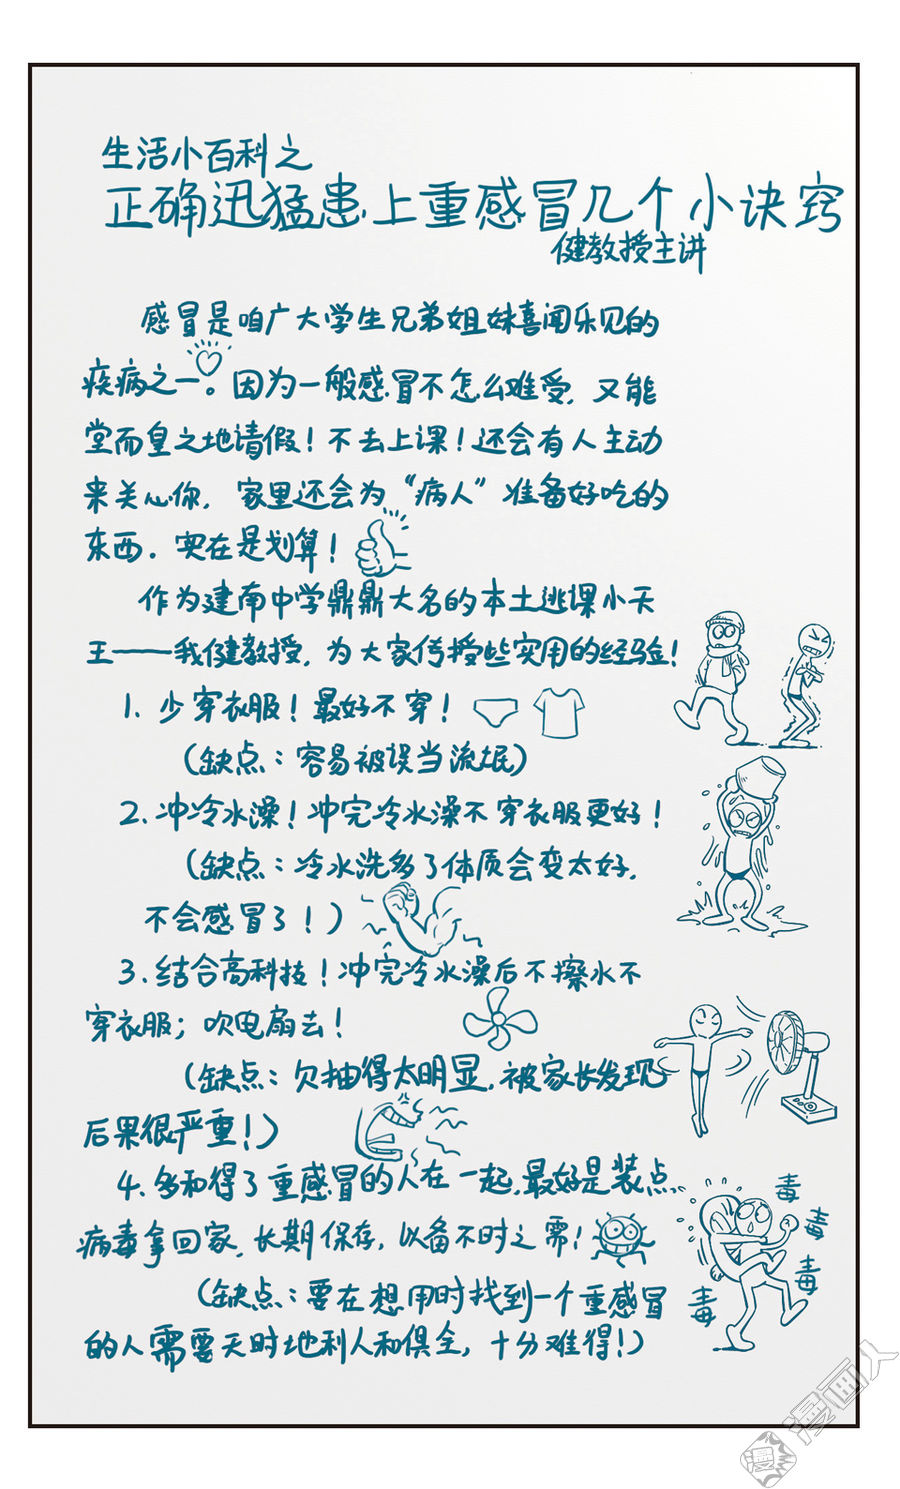 生活小百科之
正确迅猛患上重感冒几个小诀窍
健教授主讲
感冒是咱广大学生兄弟姐妹喜闻乐见的
疾病之一。因为一般感冒不怎么难受，又能
堂而皇之地请假！不去上课！还会有人主动
来关心你，家里还会为“病人”准备好吃的
东西．实在是划算！
作为建南中学鼎鼎大名的本土逃课小天
王——我健教授，为大家传授些实用的经验！
1、少穿衣服！最好不穿！
（缺点：容易被误当流氓）
2、冲冷水澡！冲完冷水澡不穿衣服更好！
（缺点：冷水洗多了体质会变太好，
不会感冒了！）
3、结合高科技！冲完冷水澡后不擦水不
穿衣服；吹电扇去！
（缺点：欠抽得太明显，被家长发现
后果很严重！）
4、多和得了重感冒的人在一起，最好是装点
病毒拿回家，长期保存，以备不时之需！
（缺点：要在想用时找到一个重感冒
的人需要天时地利人和俱全，十分难得！）
毒
毒
毒
毒
漫画人
漫画